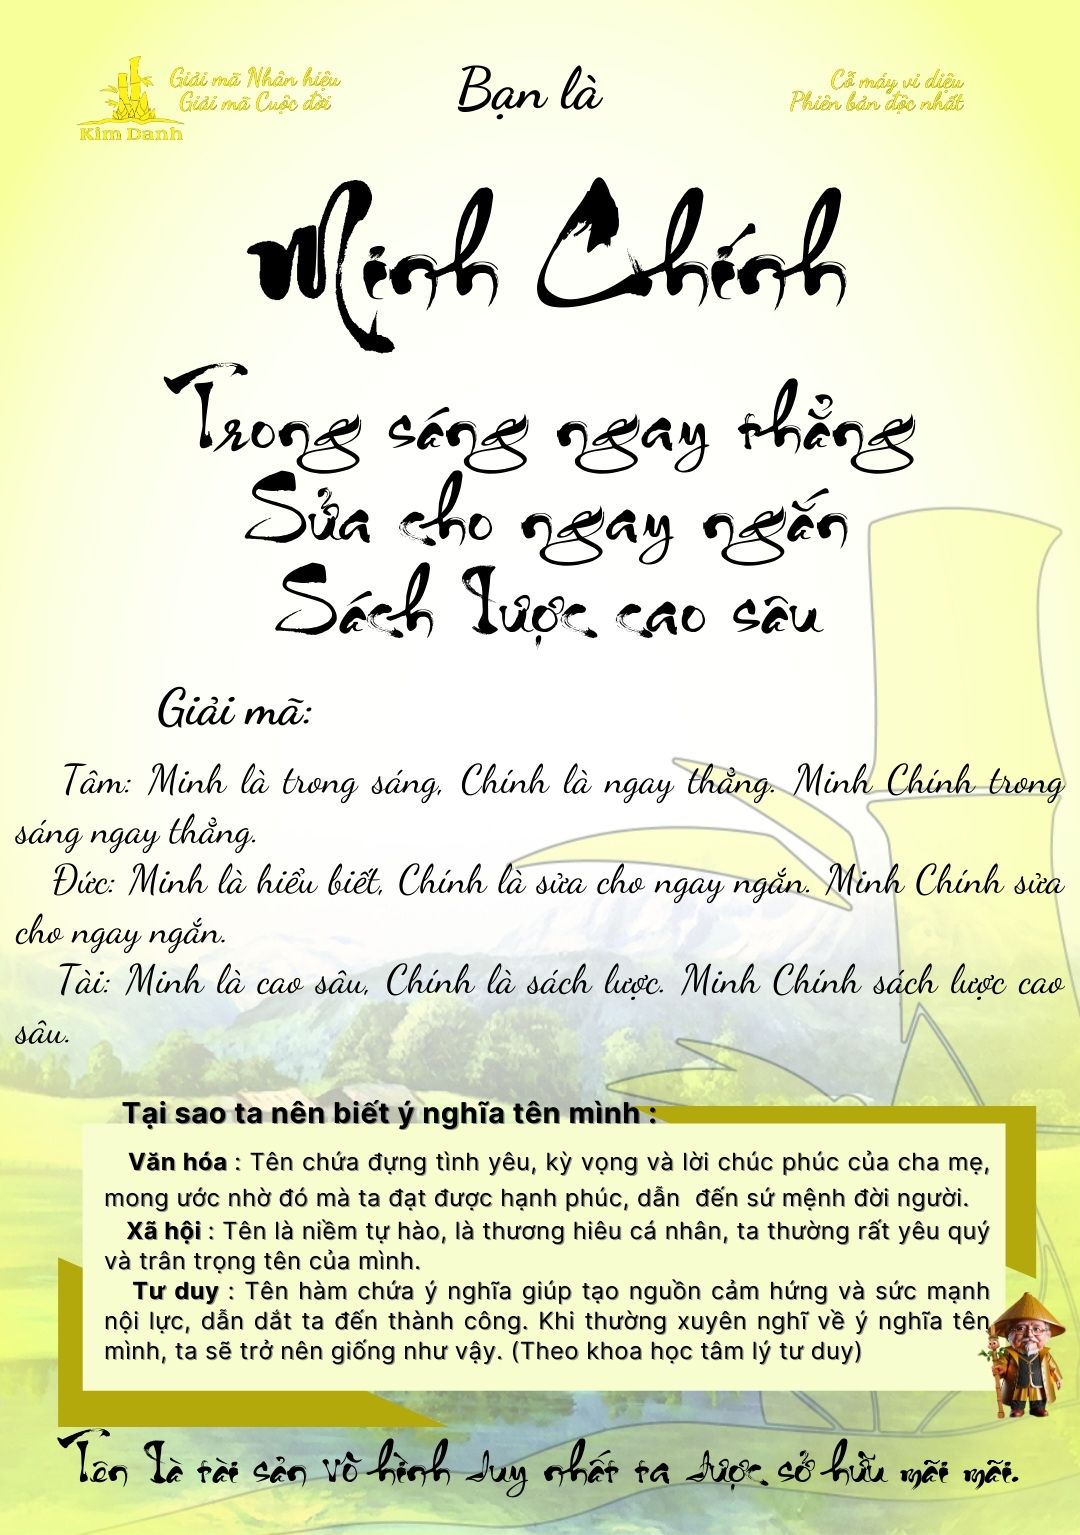 Giải mã Nhân hiệu
Giải mã Cuộc đời
Kim Danh
Bạn là
Cỗ máy vi diệu
Phiên bản độc nhất
Minh Chính
Trong sáng ngay thẳng
Sửa cho ngay ngắn
Sách lược cao sâu
Giải mã:
Tâm: Minh là trong sáng, Chính là ngay thẳng. Minh Chính trong
sáng ngay thẳng.
Đức: Minh là hiểu biết, Chính là sửa cho ngay ngắn. Minh Chính sửa
cho ngay ngắn.
Tài: Minh là cao sâu, Chính là sách lược. Minh Chính sách lược cao
sâu.
Tại sao ta nên biết ý nghĩa tên mình :
Văn hóa : Tên chứa đựng tình yêu, kỳ vọng và lời chúc phúc của cha mẹ,
mong ước nhờ đó mà ta đạt được hạnh phúc, dẫn đến sứ mệnh đời người.
Xã hội : Tên là niềm tự hào, là thương hiêu cá nhân, ta thường rất yêu quý
và trân trọng tên của mình.
Tư duy : Tên hàm chứa ý nghĩa giúp tạo nguồn cảm hứng và sức mạnh
nội lực, dẫn dắt ta đến thành công. Khi thường xuyên nghĩ về ý nghĩa tên
mình, ta sẽ trở nên giống như vậy. (Theo khoa học tâm lý tư duy)
Tên là tài sản vô hình duy nhất ta được sở hữu mãi mãi.